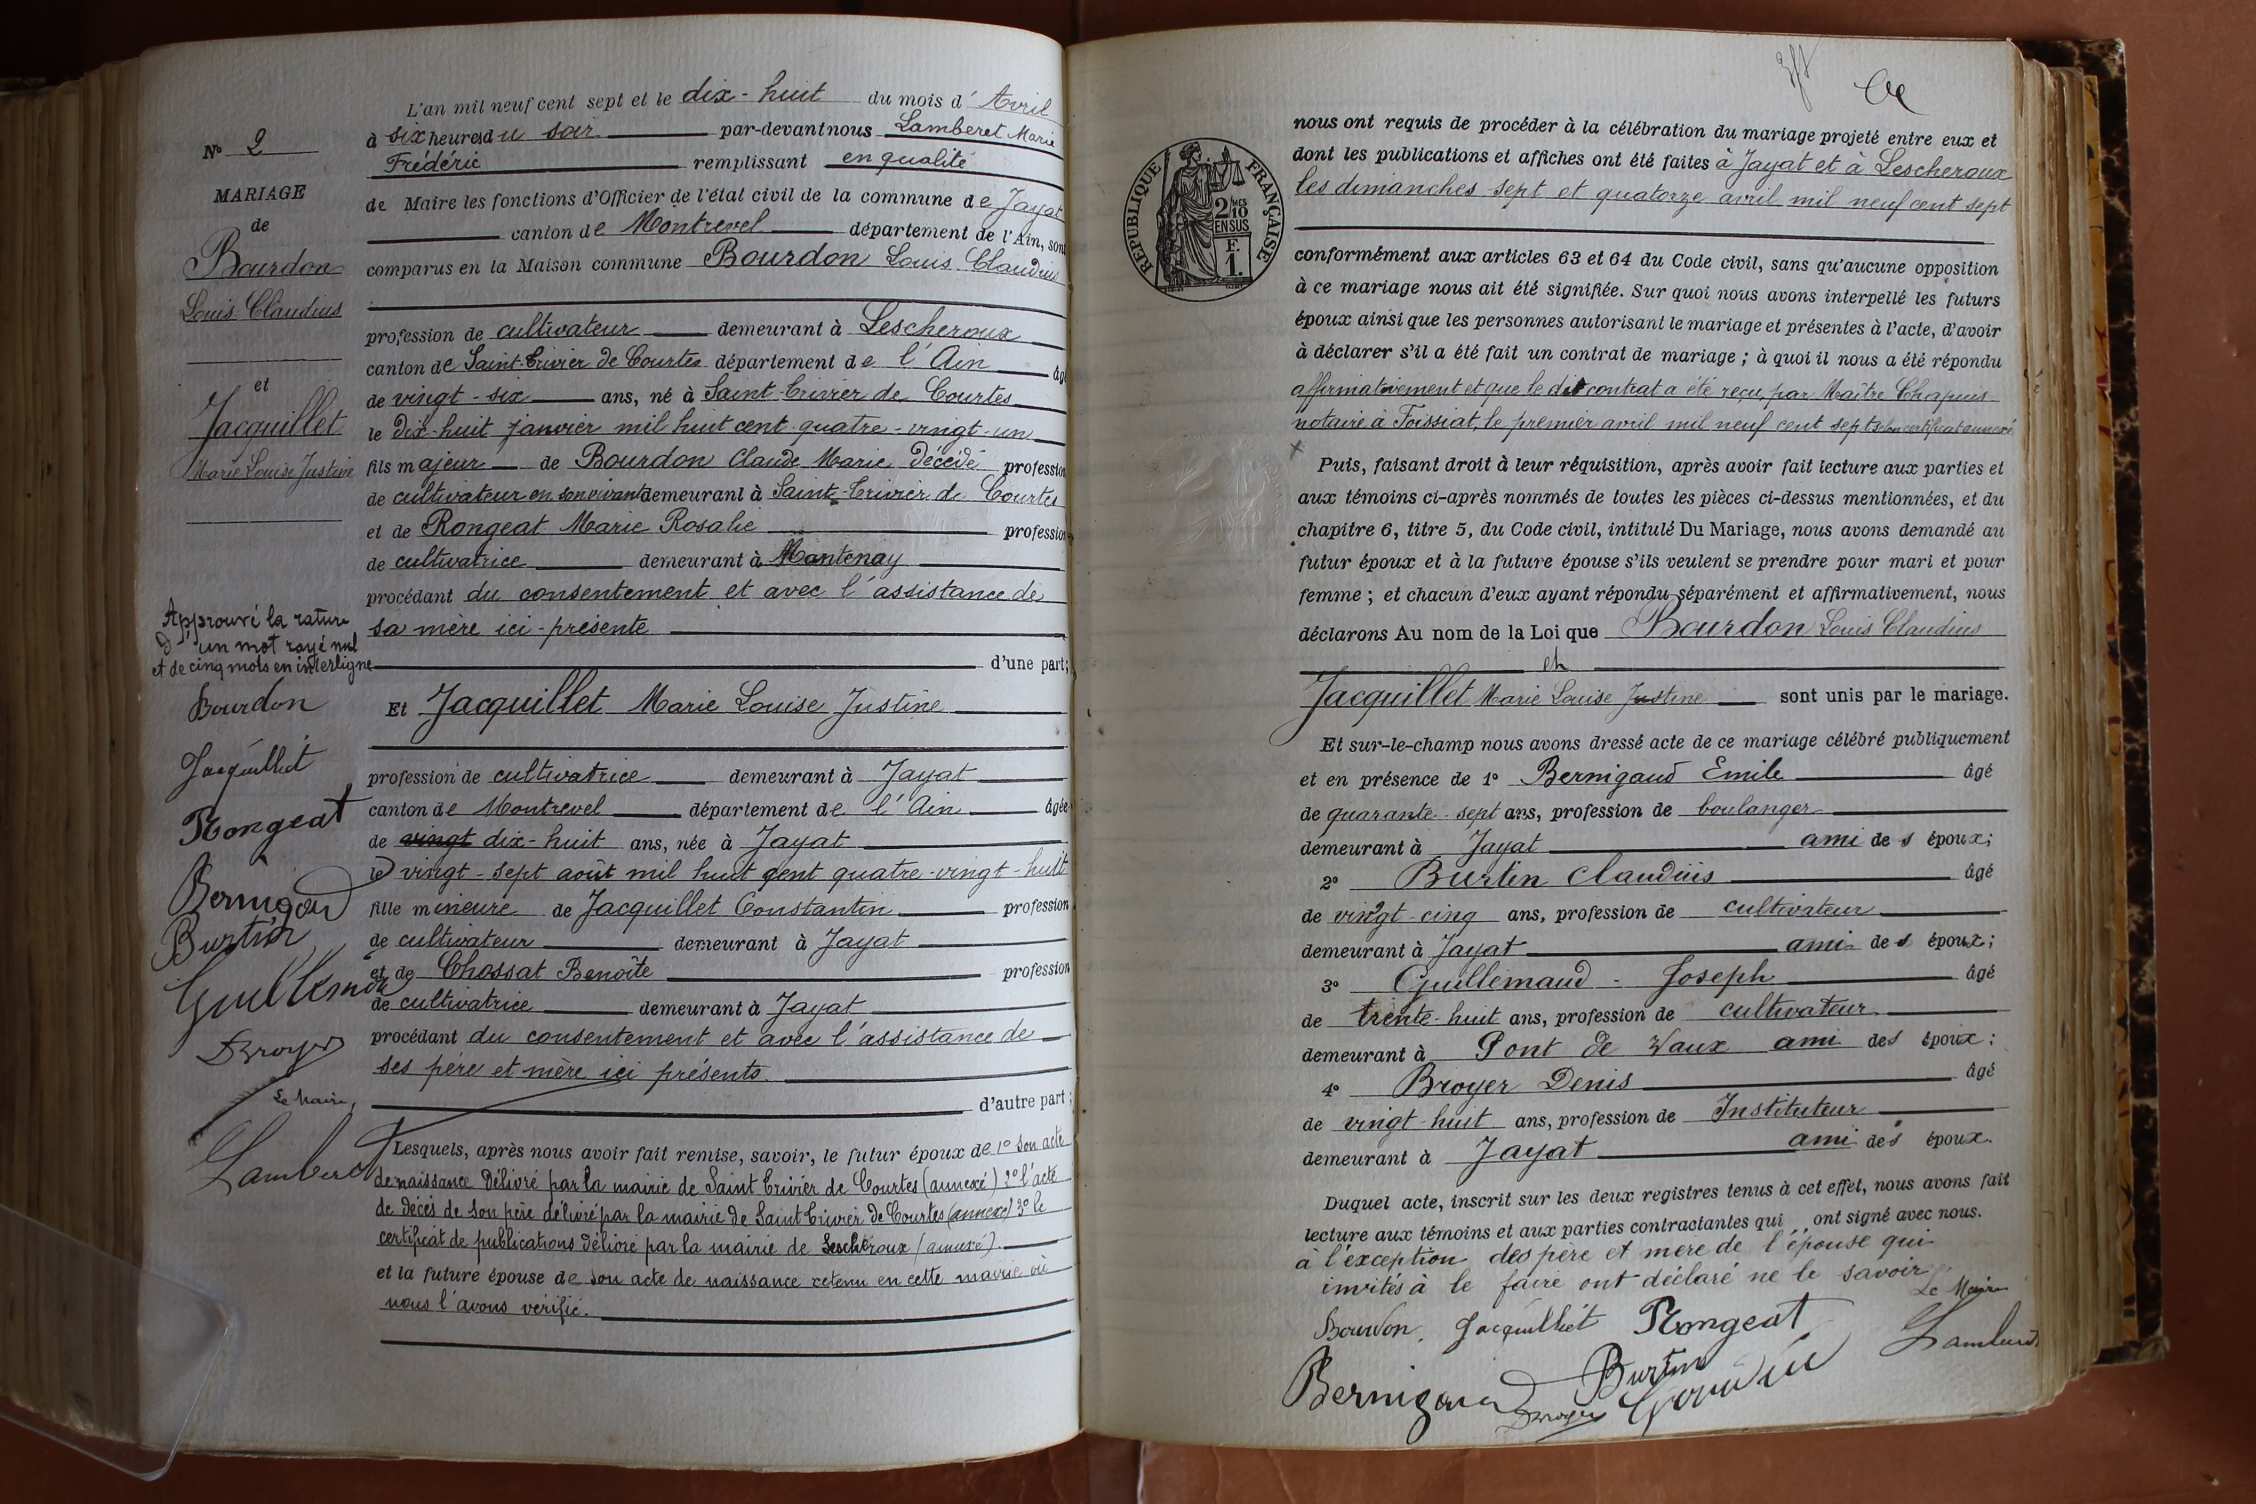 N° 2
MARIAGE
de
Bourdon
Louis Claudius
et
Jacquillet
Marie Louise Justine
Approuvé la rature
d'un mot rayé nul
et de cinq mots en interligne
Bourdon
Jacquillet
Rongeat
Bernigaud
Burtin
Guillemaud
DBroyer
Le Maire,
Lamberet
L'an mil neuf cent sept et le dix-huit du mois d' Avril
à six heures du soir par-devant nous Lamberet Marie
Frédéric remplissant en qualité
de Maire les fonctions d'Officier de l'état civil de la commune de Jayat
canton de Montrevel département de l'Ain, sont
comparus en la Maison commune Bourdon Louis Claudius
profession de cultivateur demeurant à Lescheroux
canton de Saint-Trivier de Courtes département de l'Ain âgé
de vingt-six ans, né à Saint-Trivier de Courtes
le dix-huit janvier mil huit cent quatre-vingt-un
fils majeur de Bourdon Claude Marie décédé profession
de cultivateur en son vivant demeurant à Saint-Trivier de Courtes
et de Rongeat Marie Rosalie profession
de cultivatrice demeurant à Mantenay
procédant du consentement et avec l'assistance de
sa mère ici-présente
d'une part;
Et Jacquillet Marie Louise Justine
profession de cultivatrice demeurant à Jayat
canton de Montrevel département de l'Ain âgée
de vingt dix-huit ans, née à Jayat
le vingt-sept août mil huit cent quatre-vingt-huit
fille mineure de Jacquillet Constantin profession
de cultivateur demeurant à Jayat
et de Chossat Benoîte profession
de cultivatrice demeurant à Jayat
procédant du consentement et avec l'assistance de
ses père et mère ici présents.
d'autre part;
Lesquels, après nous avoir fait remise, savoir, le futur époux de 1° son acte
de naissance délivré par la mairie de Saint Trivier de Courtes (annexé) 2° l'acte
de décès de son père délivré par la mairie de Saint Trivier de Courtes (annexé) 3° le
certificat de publications délivré par la mairie de Lescheroux (annexé).
et la future épouse de son acte de naissance retenu en cette mairie où
nous l'avons vérifié.
RÉPUBLIQUE FRANÇAISE
2/10 MES
EN SUS
F.
1.
nous ont requis de procéder à la célébration du mariage projeté entre eux et
dont les publications et affiches ont été faites à Jayat et à Lescheroux
les dimanches sept et quatorze avril mil neuf cent sept
conformément aux articles 63 et 64 du Code civil, sans qu'aucune opposition
à ce mariage nous ait été signifiée. Sur quoi nous avons interpellé les futurs
époux ainsi que les personnes autorisant le mariage et présentes à l'acte, d'avoir
à déclarer s'il a été fait un contrat de mariage ; à quoi il nous a été répondu
affirmativement et que le dit contrat a été reçu par Maître Chapuis
notaire à Foissiat, le premier avril mil neuf cent sept selon certificat annexé
Puis, faisant droit à leur réquisition, après avoir fait lecture aux parties et
aux témoins ci-après nommés de toutes les pièces ci-dessus mentionnées, et du
chapitre 6, titre 5, du Code civil, intitulé Du Mariage, nous avons demandé au
futur époux et à la future épouse s'ils veulent se prendre pour mari et pour
femme ; et chacun d'eux ayant répondu séparément et affirmativement, nous
déclarons Au nom de la Loi que Bourdon Louis Claudius
et
Jacquillet Marie Louise Justine sont unis par le mariage.
Et sur-le-champ nous avons dressé acte de ce mariage célébré publiquement
et en présence de 1° Bernigaud Emile âgé
de quarante-sept ans, profession de boulanger
demeurant à Jayat ami des époux;
2° Burtin Claudius âgé
de vingt-cinq ans, profession de cultivateur
demeurant à Jayat ami des époux;
3° Guillemaud - Joseph âgé
de trente-huit ans, profession de cultivateur
demeurant à Pont de Vaux ami des époux;
4° Broyer Denis âgé
de vingt-huit ans, profession de Instituteur
demeurant à Jayat ami des époux.
Duquel acte, inscrit sur les deux registres tenus à cet effet, nous avons fait
lecture aux témoins et aux parties contractantes qui ont signé avec nous.
à l'exception des père et mère de l'épouse qui
invités à le faire ont déclaré ne le savoir.
Le Maire
Bourdon. Jacquillet Rongeat
Lamberet
Bernigaud Burtin
DBroyer